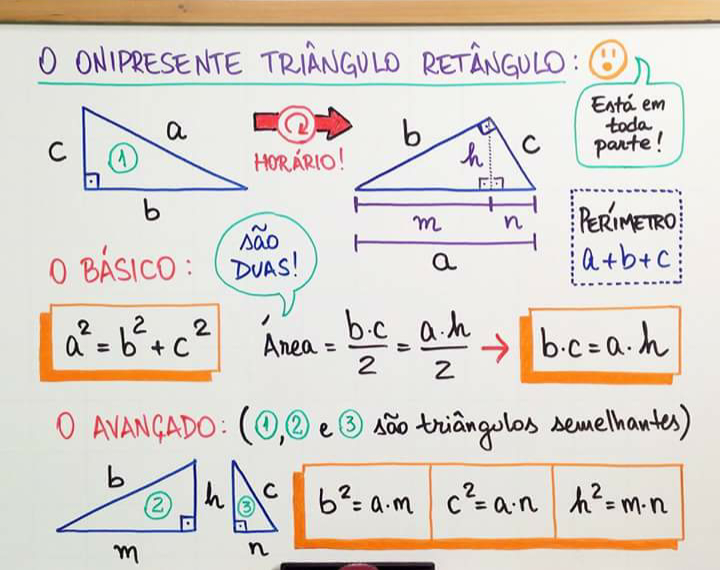 O ONIPRESENTE TRIÂNGULO RETÂNGULO:
Está em
toda
parte!
c
a
1
b
HORÁRIO!
b
h
c
m
n
a
PERÍMETRO
a+b+c
O BÁSICO:
são
DUAS!
a² = b² + c²
Área = b·c/2 = a·h/2 → b·c = a·h
O AVANÇADO: (1, 2 e 3 são triângulos semelhantes)
b
2
h
m
3
c
n
b² = a·m
c² = a·n
h² = m·n